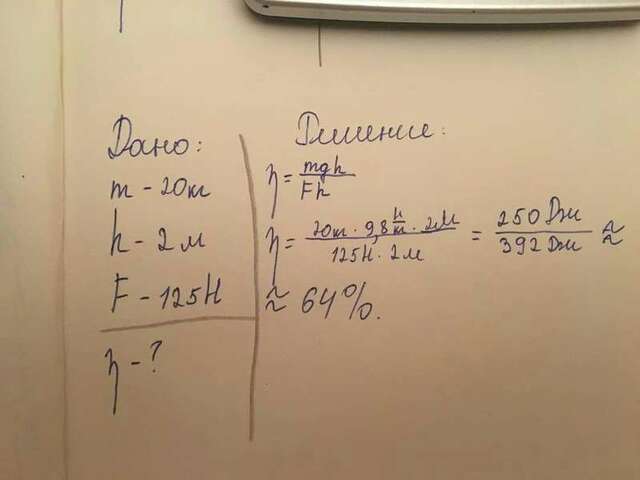 Дано:
m - 20кг
h - 2м
F - 125Н
η - ?
Решение:
η = mgh / Fh
η = 20кг · 9,8 Н/кг · 2м / 125Н · 2м = 250Дж / 392Дж ≈
≈ 64%.